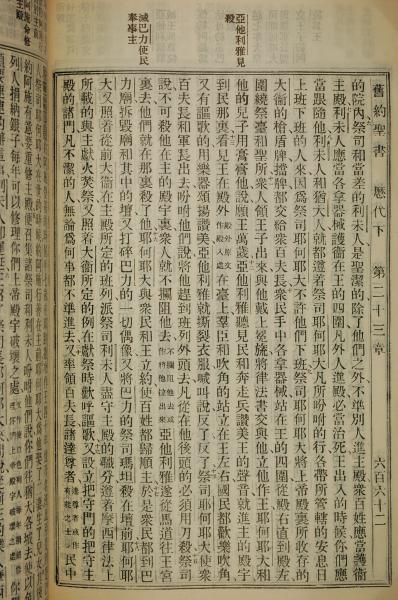 舊約聖書 歷代下 第二十三章 六百六十一
的院內祭司和當差的利未人是聖潔的除了他們之外不準別人進主殿衆百姓應當護衛
主殿利未人應當各拿器械護衛在王的四圍凡外人進殿必當治死王出入的時候你們應
當跟隨他利未人和猶大人就都遵着祭司耶何耶大凡所吩咐的行各帶所管轄的安息日
上班下班的人來因爲祭司耶何耶大不許他們下班祭司耶何耶大將上帝殿裏所收存的
大衛的槍盾牌擋牌都交給衆百夫長衆民手中各拿器械站在王的四圍從殿右直到殿左
圍繞祭臺和聖所衆人領王子出來與他戴上冕旒將律法書交與他立他作王耶何耶大和
他的兒子用膏膏他說願王萬歲亞他利雅聽見民和奔走兵讚美王的聲音就進主的殿宇
亞他利雅見
殺
到民那裏看見王在殿外殿外原文作殿入處在臺上羣臣和吹角的站立在王左右國民都歡樂吹角
又有謳歌的用樂器頌揚讚美亞他利雅就撕裂衣服喊叫說反了反了祭司耶何耶大使衆
百夫長和軍長出去吩咐他們說將他趕到班列外頭去凡從在他後頭的必須用刀殺祭司
說不可殺他在主的殿宇裏衆人就不攔阻他去不攔阻他去或作將他拉出來亞他利雅遂從馬道往王宮
裏去他們就在那裏殺了他耶何耶大與衆民和王立約使百姓都歸順主於是衆民都到巴
滅巴力使民
奉事主
力廟拆毀廟和其中的壇又打碎巴力的一切偶像又將巴力的祭司瑪坦殺在壇前耶何耶
大又照着從前大衛在主殿所定的班列派祭司利未人盡守主殿的職分遵着摩西律法上
所載的與主獻火焚祭又照着大衛所定的例在獻祭時歡呼謳歌又設立把守門的把守主
殿的諸門凡不潔的人無論爲何事都不準進去又率領百夫長諸達尊者達尊者或作有能之士民中